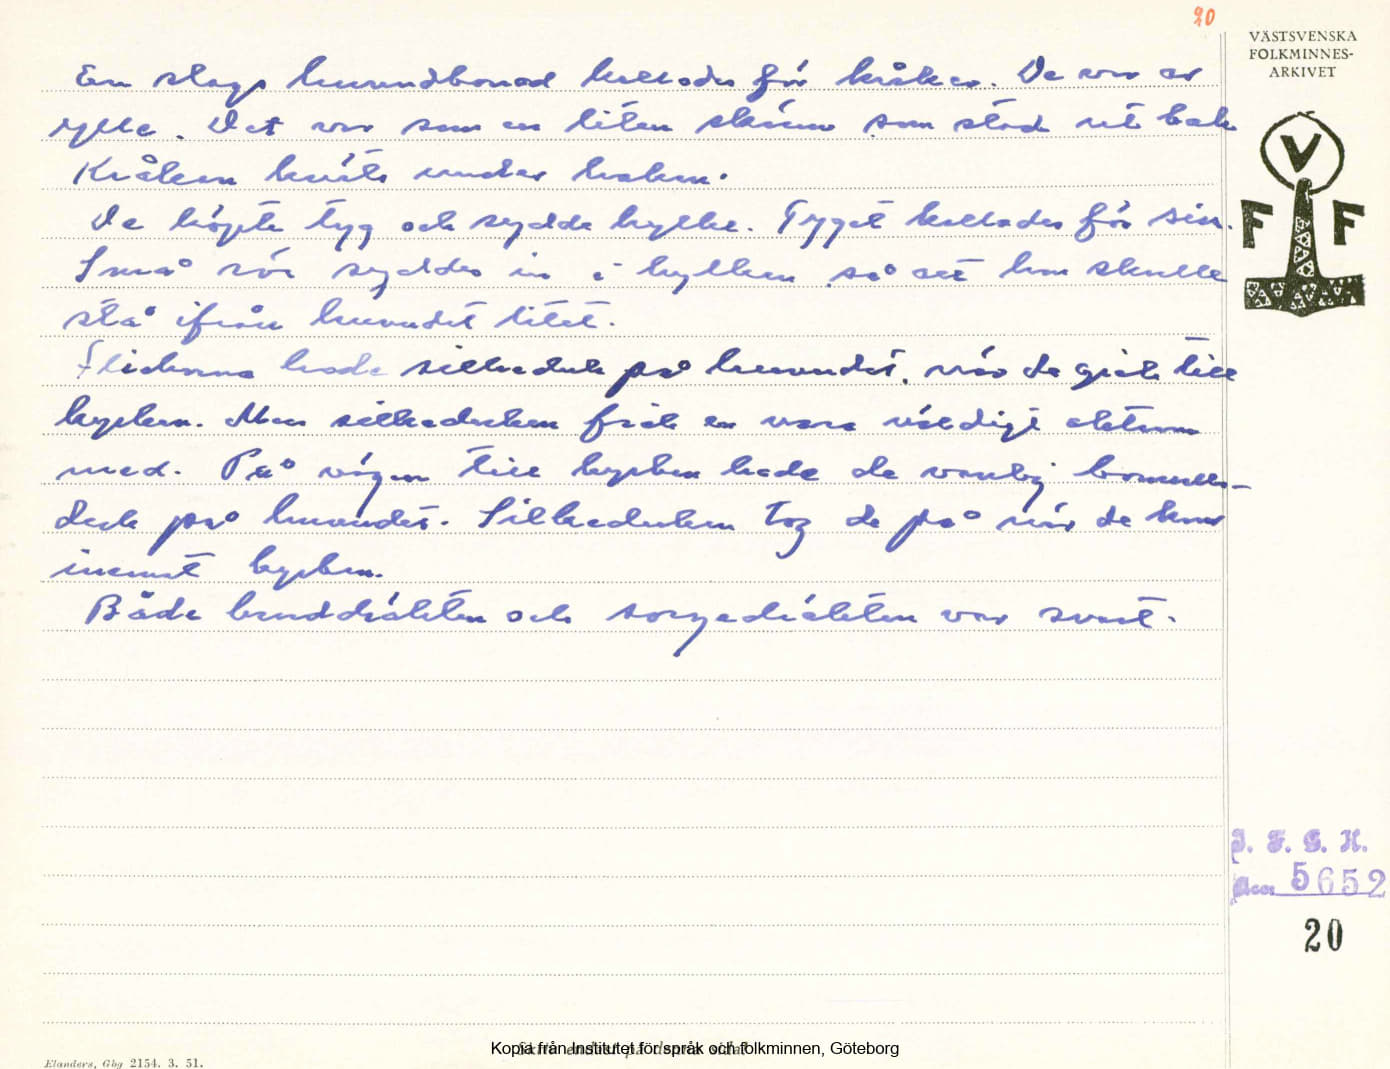 20
VÄSTSVENSKA
FOLKMINNES-
ARKIVET
En slags huvudbonad kallades för kråka. De var av
ylle. Det var som en liten skärm som stod ut bak
Kråkan knöts under hakan.
De köpte tyg och sydde hylke. Tyget kallades för
Små rör syddes in i hylken så att han skulle
stå ifrån huvudet litet.
Flickorna hade silkeduk på huvudet, när de gick till
kyrkan. Men silkeduken fick en vara väldigt aktsam
med. På vägen till kyrkan hade de vanlig bomulls-
duk på huvudet. Silkeduken tog de på när de kom
inemot kyrkan.
Både bruddräkten och sorgedräkten var svart.
V
F F
I. F. G. H.
Acc. 5652
20
Kopia från Institutet för språk och folkminnen, Göteborg
Elanders, Gbg 2154. 3. 51.